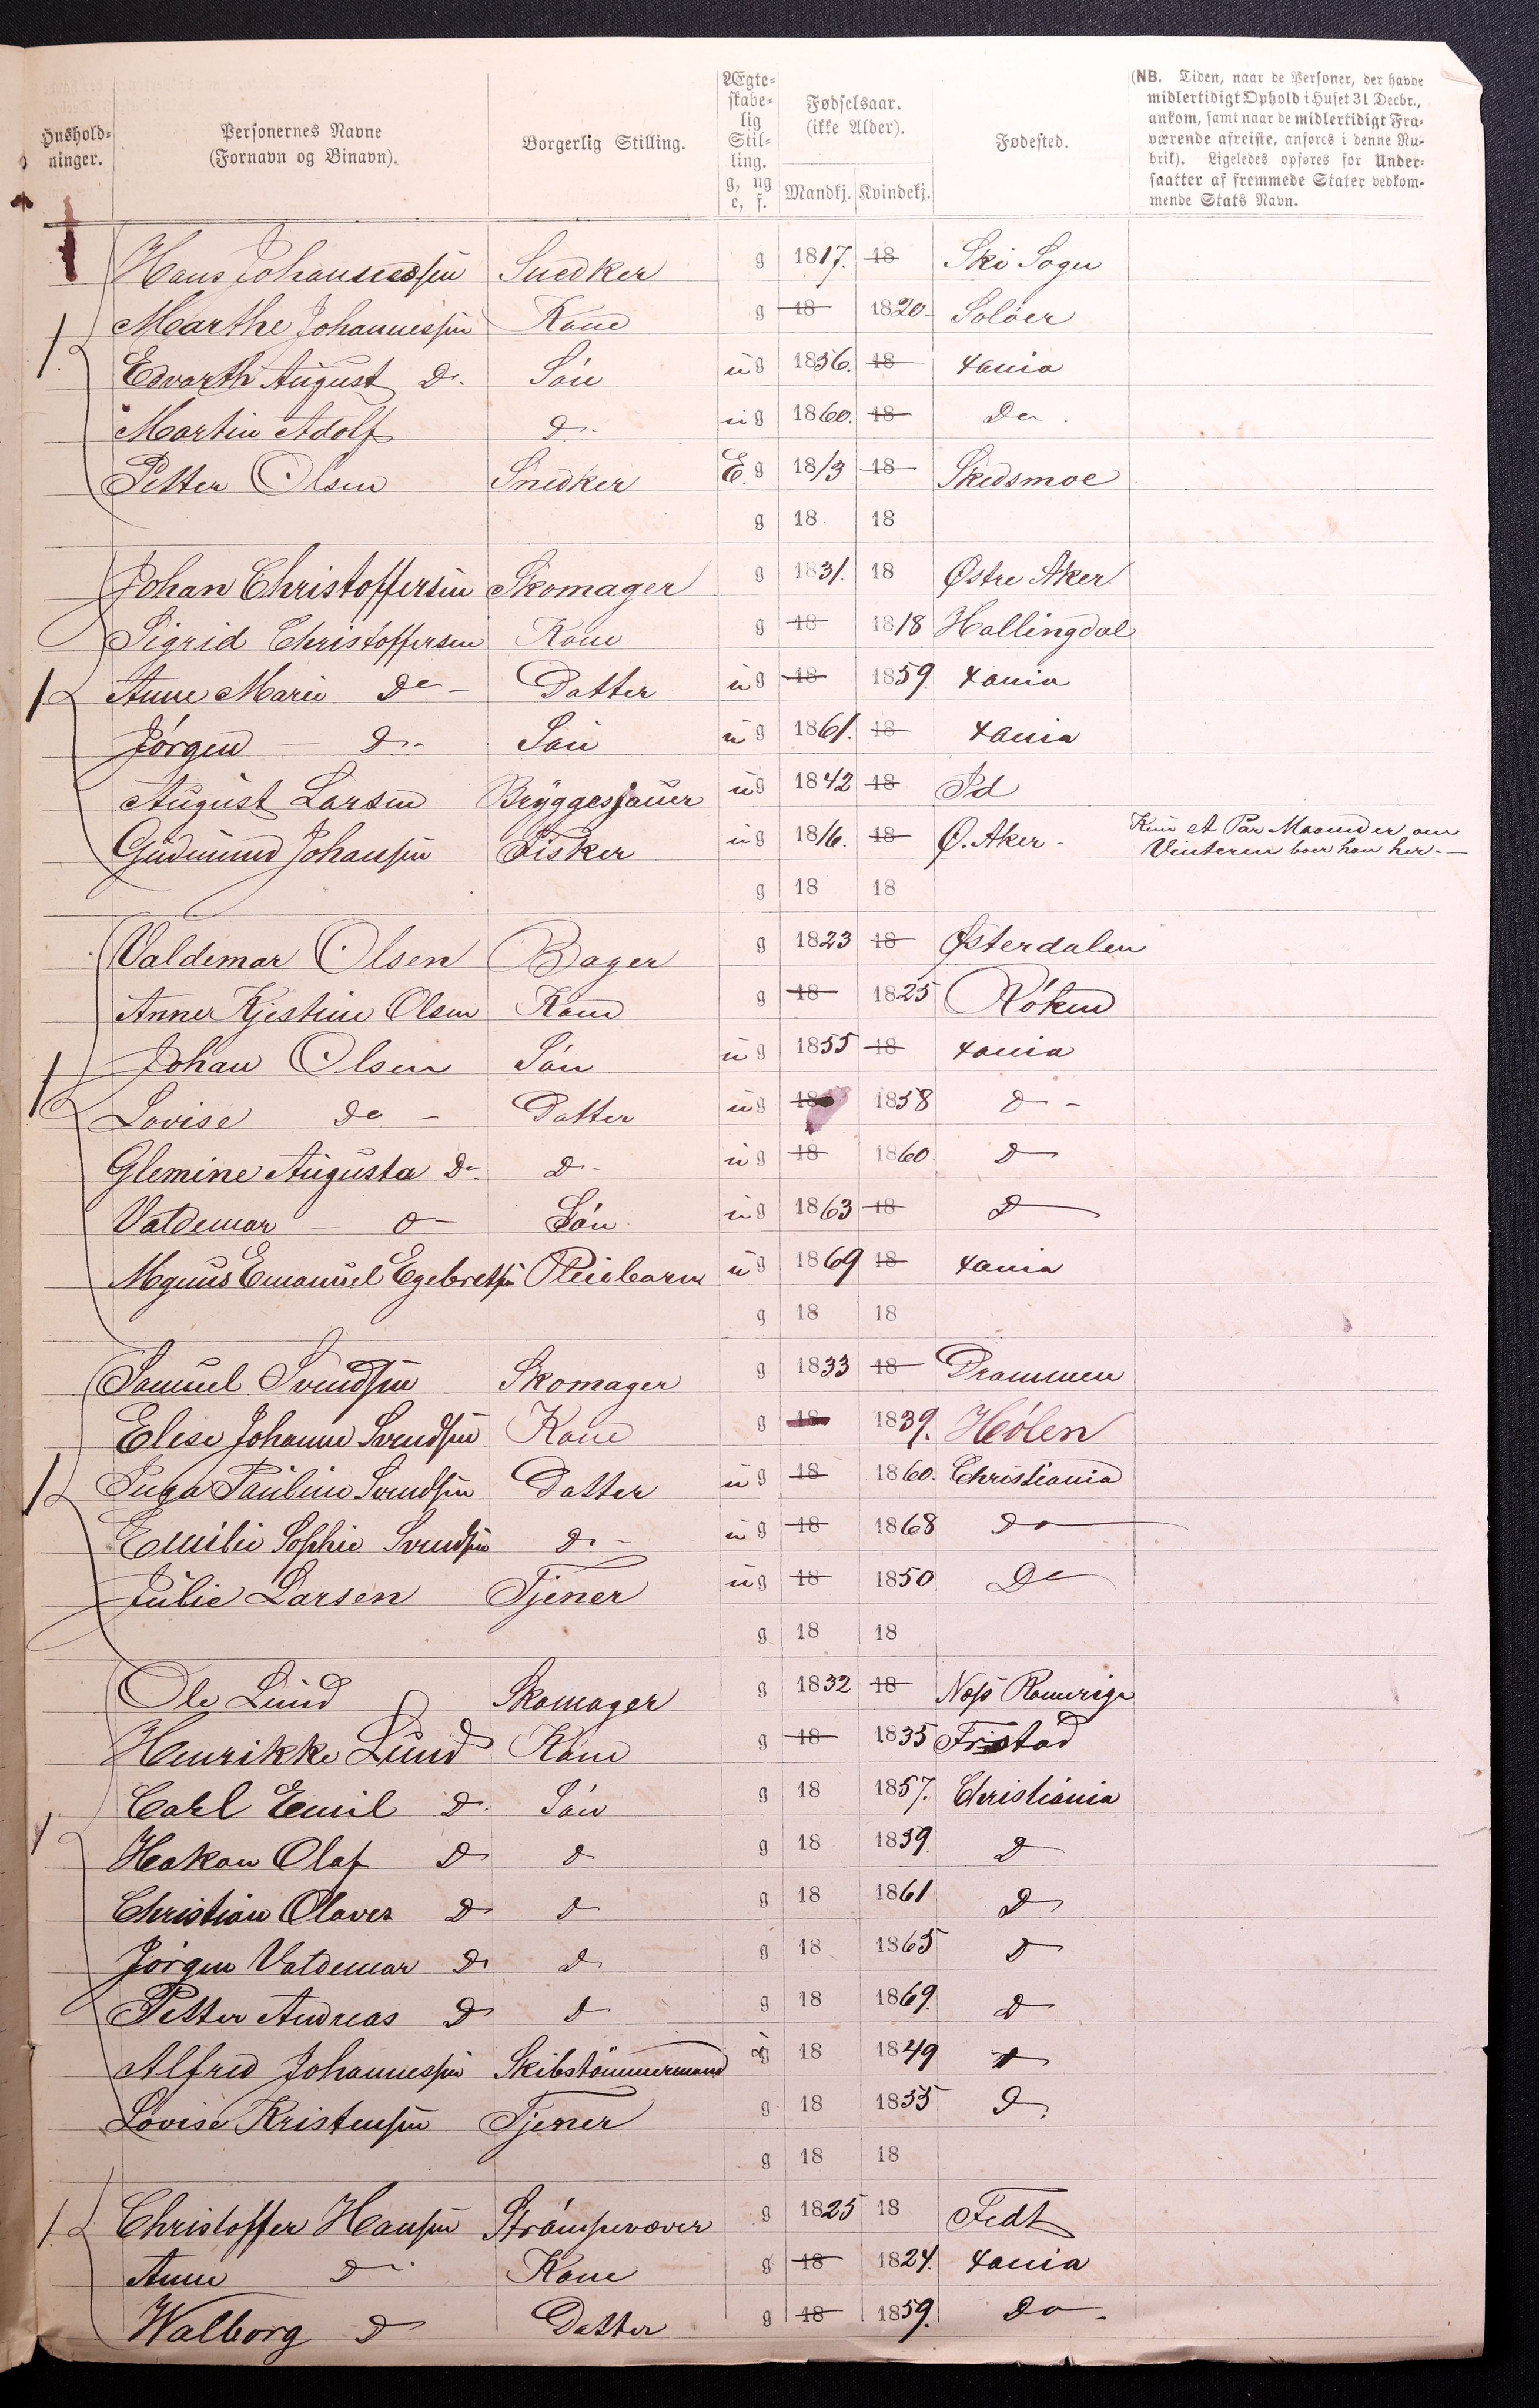 Hushold-
ninger.
Personernes Navne
(Fornavn og Binavn).
Borgerlig Stilling.
Ægte-
skabe-
lig
Stil-
ling.
g, ug
e, f.
Fødselsaar.
(ikke Alder).
Mandkj. Kvindekj.
Fødested.
(NB. Tiden, naar de Personer, der havde
midlertidigt Ophold i Huset 31 Decbr.,
ankom, samt naar de midlertidigt Fra-
værende afreiste, anføres i denne Ru-
brik). Ligeledes opføres for Under-
saatter af fremmede Stater vedkom-
mende Stats Navn.
Hans Johannessen Snedker g 1817. 18 Ski Sogn
Marthe Johannessen Kone g 18 1820 Soløer
Edvarth August Do. Søn ug 1856. 18 Xania
Martin Adolf Do. ug 1860. 18 Do.
Petter Olsen Snedker E g 1813 18 Skedsmoe
g 18 18
Johan Christoffersen Skomager g 1831. 18 Østre Aker
Sigrid Christoffersen Kone g 18 1818 Hallingdal
Anne Marie Do - Datter ug 18 1859. Xania
Jørgen - Do. Søn ug 1861. 18 Xania
August Larsen Bryggesjauer ug 1842 18 Id
Gudmund Johansen Fisker ug 1816. 18 Ø. Aker -
Kun et Par Maaneder om
Vinteren boer han her. -
g 18 18
Valdemar Olsen Bager g 1823 18 Østerdalen
Anne Kjestine Olsen Kone g 18 1825 Røken
Johan Olsen Søn ug 1855 18 Xania
Lovise do - Datter ug 18 1858 Do -
Glemine Augusta Do. Do. ug 18 1860. Do
Valdemar - Do - Søn ug 1863 18 Do
Mgnus Emanuel Egebretsen Pleiebarn ug 1869 18 Xania
g 18 18
Samuel Svendsen Skomager g 1833 18 Drammen
Elese Johanne Svendsen Kone g 18 1839. Hølen
Inga Pauline Svendsen Datter ug 18 1860. Christiania
Emilie Sophie Svendsen Do. - ug 18 1868 Do
Julie Larsen Tjener ug 18 1850 Do
g 18 18
Ole Lund Skomager g 1832 18 Næs Romerige
Henrikke Lund Kone g 18 1835 Fristad
Carl Emil Do. Søn g 18 1857. Christiania
Hakon Olaf Do Do g 18 1859. Do
Christian Olaves Do Do g 18 1861 Do
Jørgen Valdemar Do Do g 18 1865 Do
Petter Andreas Do Do g 18 1869. Do
Alfred Johannessen Skibstømmermand ug 18 1849 Do
Lovise Kristensen Tjener g 18 1855 Do.
g 18 18
Christoffer Hansen Strømpevæver g 1825 18 Fedt
Anne Do. Kone g 18 1824. Xania
Walborg Do Datter g 18 1859. Do.